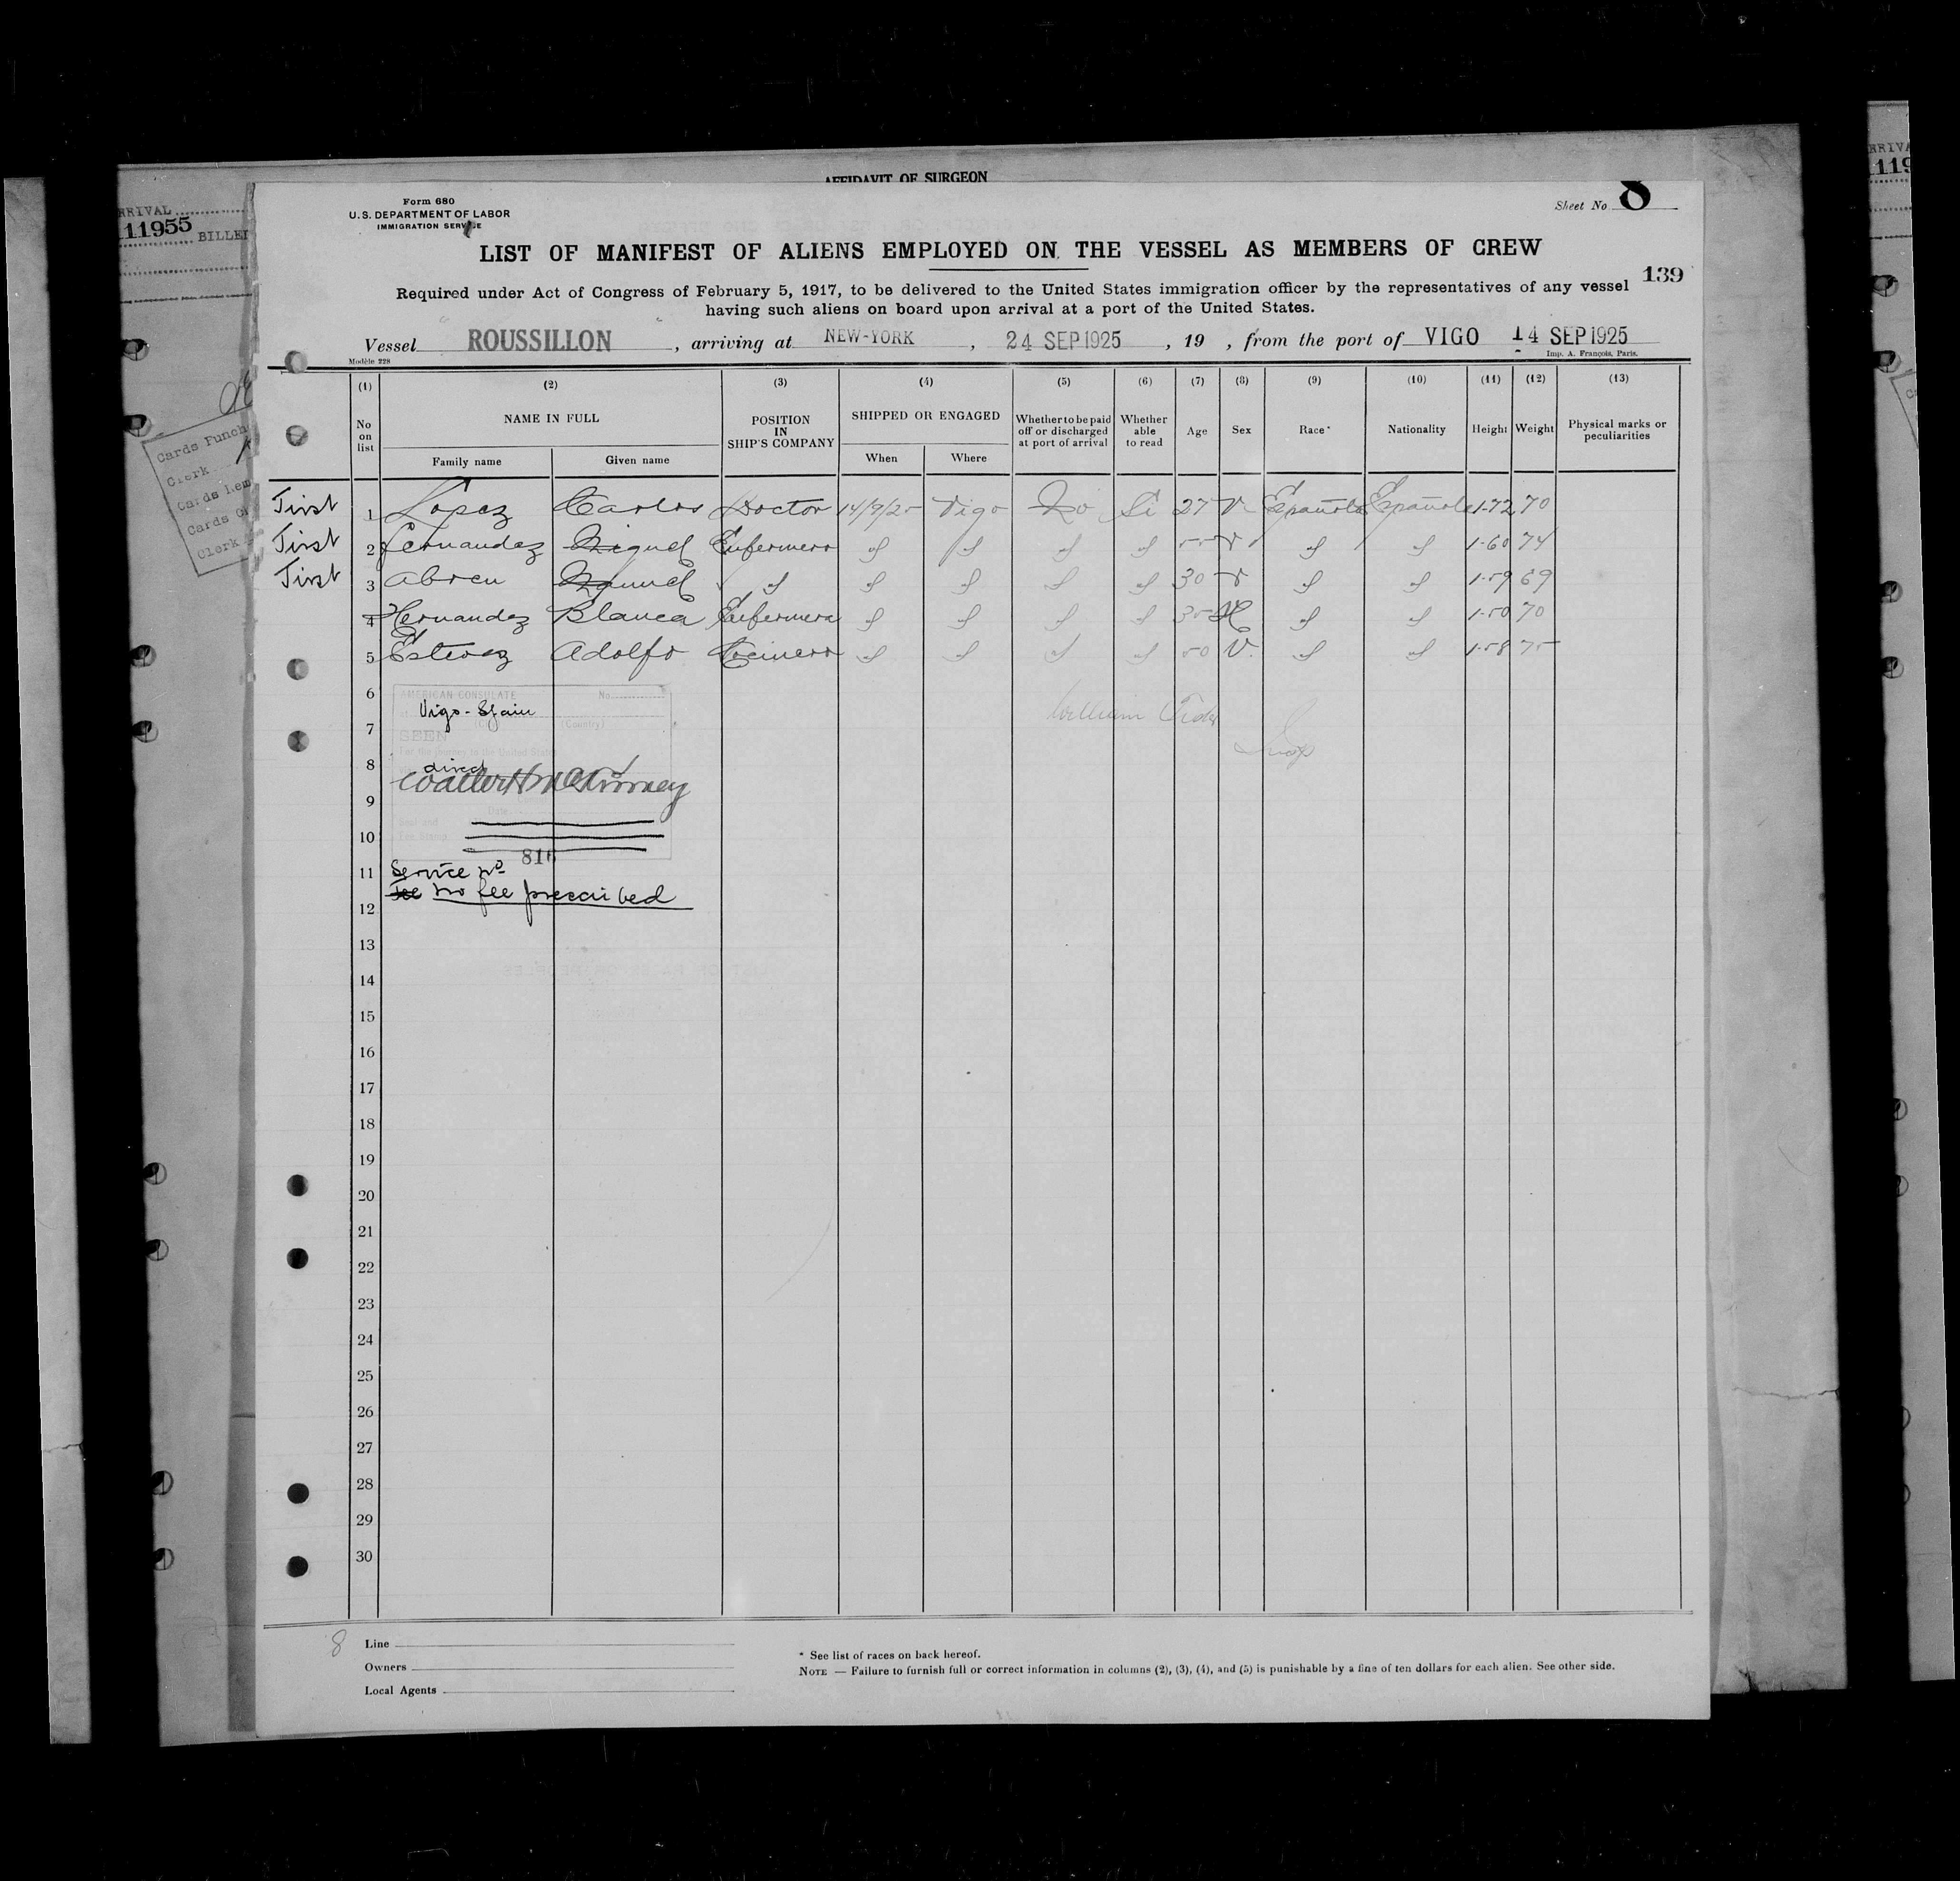 AFFIDAVIT OF SURGEON
RRIVAL
11955
BILLET
Cards Punch
Clerk
Cards
Cards
Clerk
RRIVA
119
Form 680
U.S. DEPARTMENT OF LABOR
IMMIGRATION SERVICE
Sheet No 8
LIST OF MANIFEST OF ALIENS EMPLOYED ON THE VESSEL AS MEMBERS OF CREW
139
Required under Act of Congress of February 5, 1917, to be delivered to the United States immigration officer by the representatives of any vessel
having such aliens on board upon arrival at a port of the United States.
Vessel ROUSSILLON, arriving at NEW-YORK, 24 SEP 1925, 19 , from the port of VIGO 14 SEP 1925
Modèle 228
Imp. A. François, Paris.
(1) (2) (3) (4) (5) (6) (7) (8) (9) (10) (11) (12) (13)
No on list NAME IN FULL POSITION IN SHIP'S COMPANY SHIPPED OR ENGAGED Whether to be paid off or discharged at port of arrival Whether able to read Age Sex Race* Nationality Height Weight Physical marks or peculiarities
Family name Given name When Where
First 1 Lopez Carlos Doctor 14/9/25 Vigo No Si 27 V Española Española 1-72 70
First 2 Fernandez Miguel Enfermero 55 V 1-60 74
First 3 Abreu Manuel 30 V 1-59 69
4 Hernandez Blanca Enfermera 35 H 1-50 70
5 Estevez Adolfo Cocinero 50 V. 1-58 75
6
AMERICAN CONSULATE No
Vigo - Spain
(Country)
7
SEEN
For the journey to the United States
William
8
direct
9
Date
10
816
11
Service No
Fee no fee prescribed
12
13
14
15
16
17
18
19
20
21
22
23
24
25
26
27
28
29
30
8
Line
Owners
Local Agents
* See list of races on back hereof.
NOTE — Failure to furnish full or correct information in columns (2), (3), (4), and (5) is punishable by a fine of ten dollars for each alien. See other side.